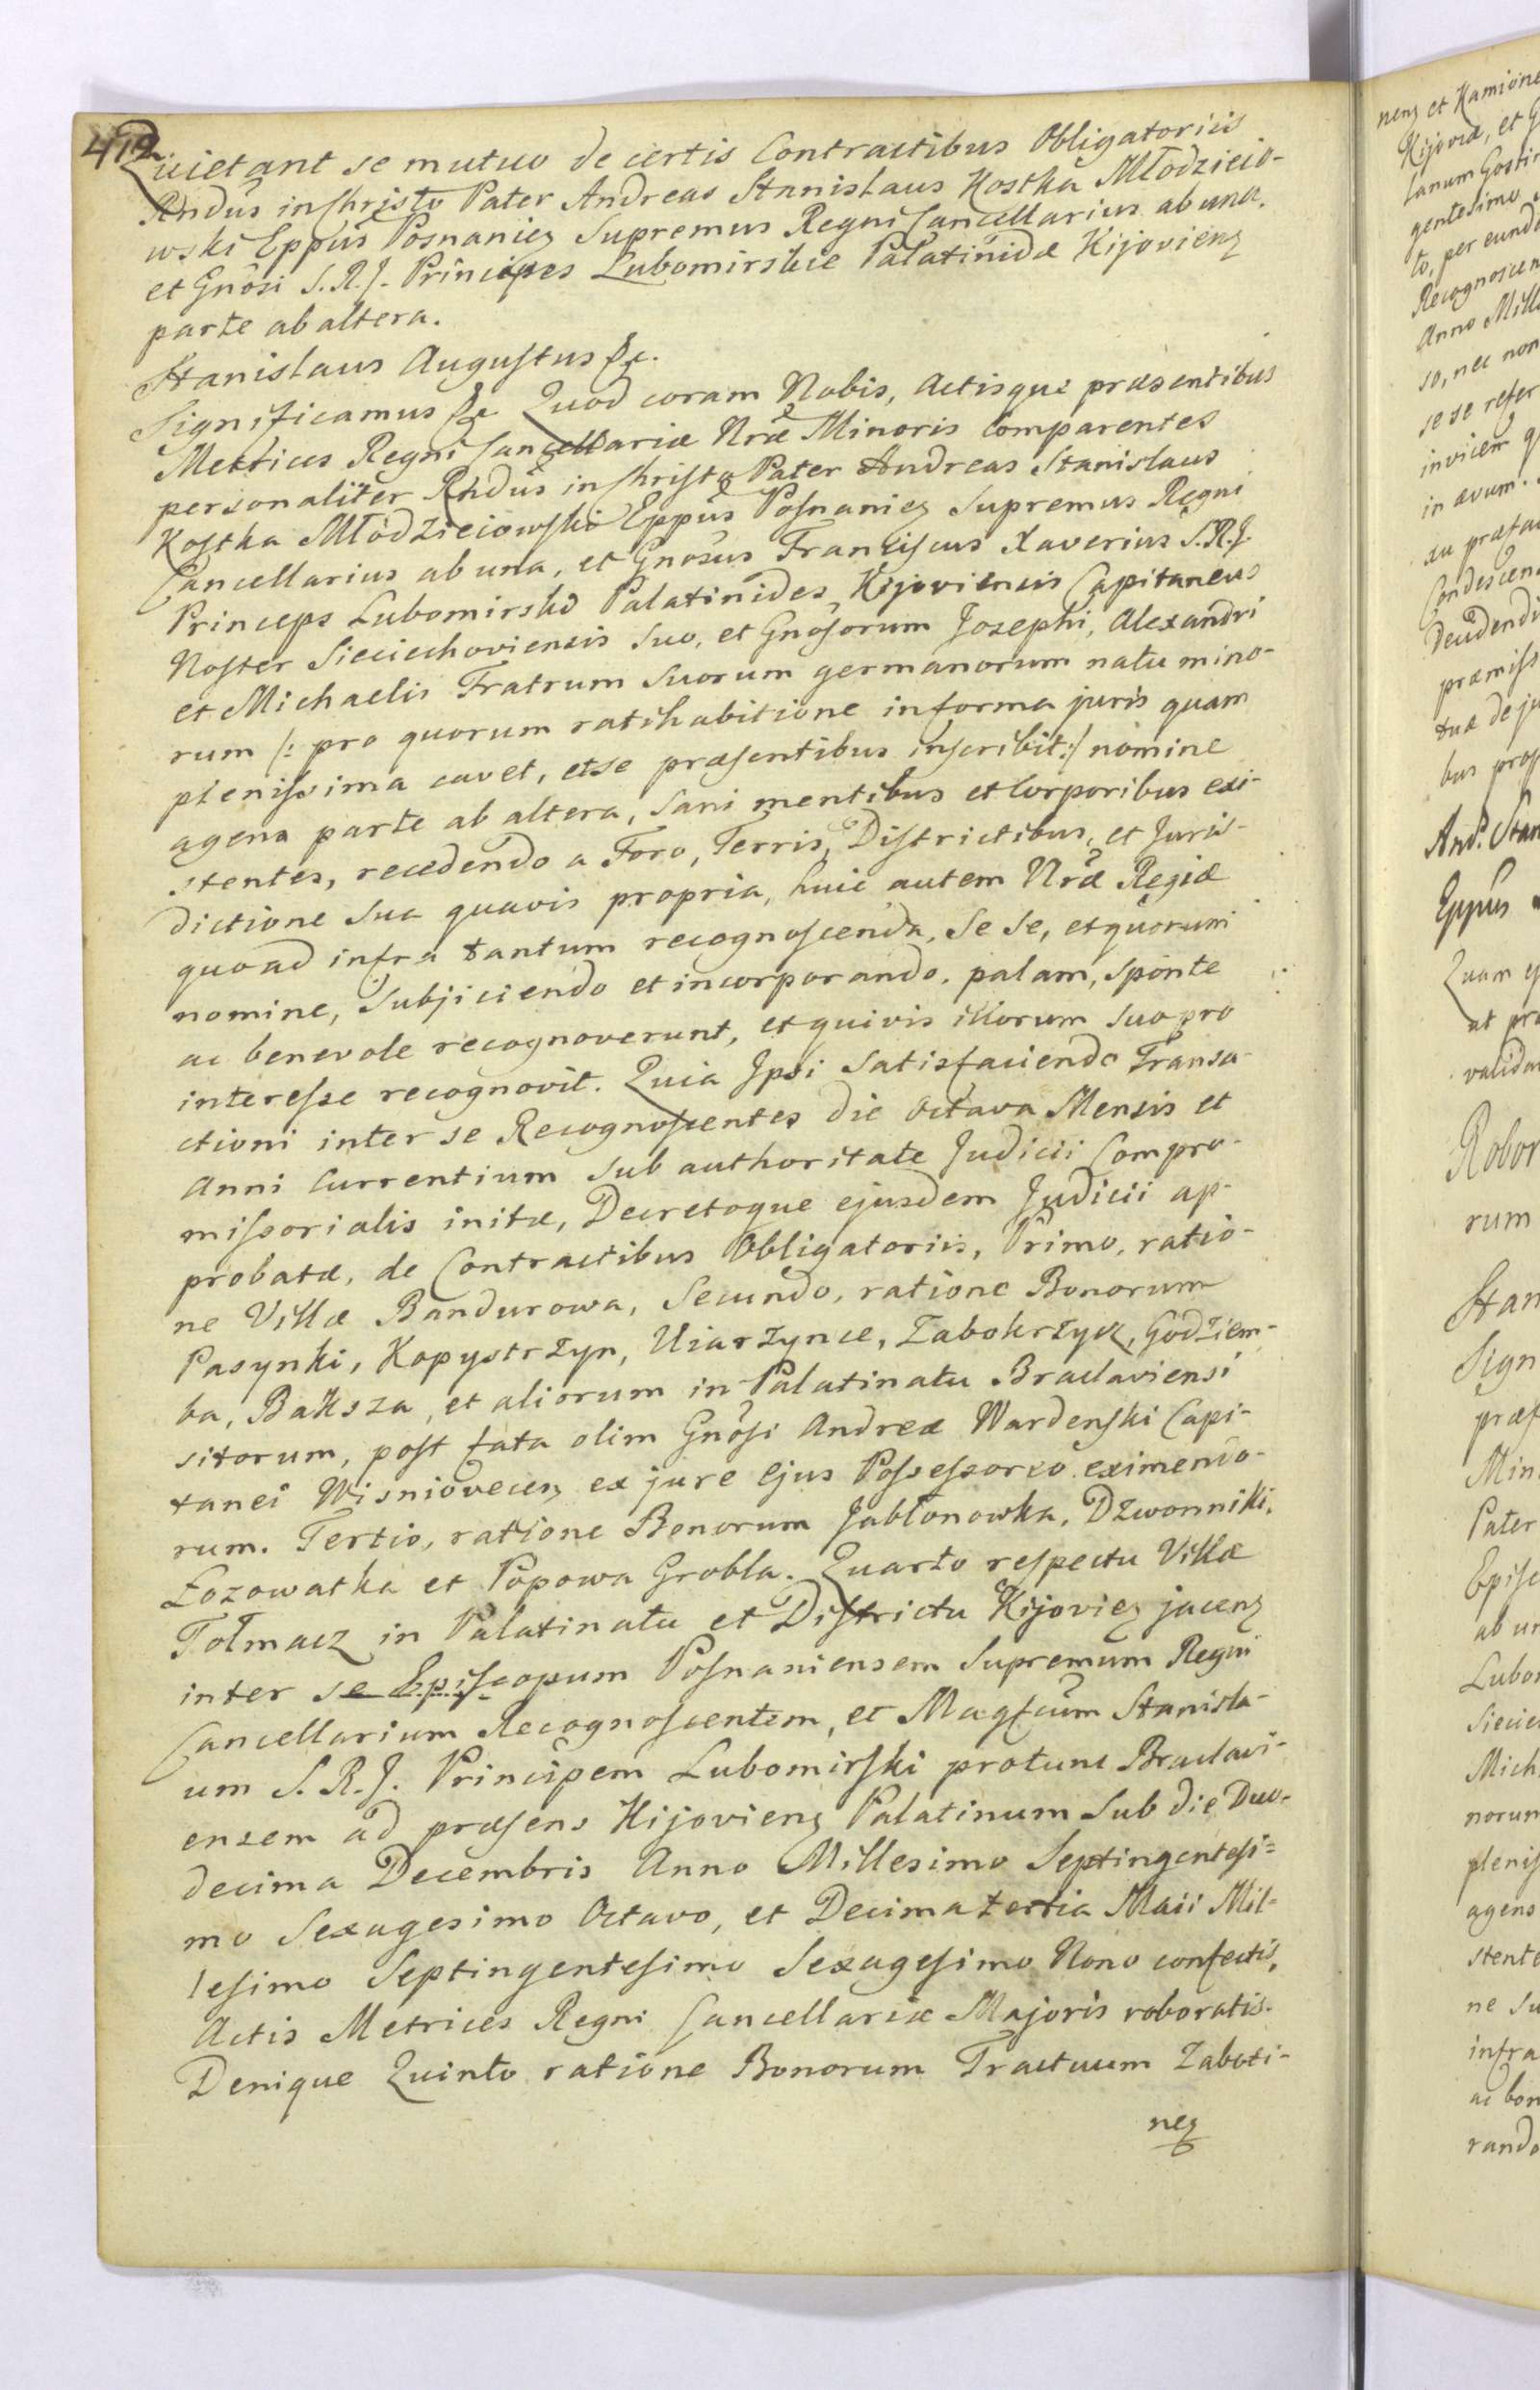 412
Quietant se mutuo de certis Contractibus Obligatoriis
Rndus in Christo Pater Andreas Stanislaus Kostka Młodziejo-
wski Eppus Posnanien Supremus Regni Cancellarius ab una,
et Gnosi S. R. J. Principes Lubomirskie Palatinidæ Kijovien
parte ab altera.
Stanislaus Augustus &c.
Significamus &c Quod coram Nobis, Actisque præsentibus
Metrices Regni Cancellariæ Nræ Minoris Comparentes
personaliter Rndus in Christo Pater Andreas Stanislaus
Kostka Młodzieiowski Eppus Posnanien Supremus Regni
Cancellarius ab una, et Gnosus Franciscus Xaverius S. R. J.
Princeps Lubomirski Palatinides Kijoviensis Capitaneus
Noster Sieciechoviensis suo, et Gnosorum Josephi, Alexandri
et Michaelis Fratrum Suorum germanorum natu mino-
rum /: pro quorum ratihabitione in forma juris quam
plenissima cavet, et se præsentibus inscribit :/ nomine
agens parte ab altera, Sani mentibus et Corporibus exi-
stentes, recedendo a Foro, Terris, Districtibus, et Juris-
dictione Sua quavis propria, huic autem Nræ Regiæ
quoad infra tantum recognoscenda, Se se, et quorum
nomine, Subjiciendo et incorporando, palam, sponte
ac benevole recognoverunt, et quivis illorum Suo pro
interesse recognovit. Quia Ipsi Satisfaciendo Transa-
ctioni inter se Recognoscentes die octava Mensis et
Anni Currentium Sub authoritate Judicii Compro-
missorialis initæ, Decretoque ejusdem Judicii ap-
probatæ, de Contractibus Obligatoriis, Primo, ratio-
ne Villæ Bandurowa, Secundo, ratione Bonorum
Pasynki, Kopystrzyn, Uiarzynce, Zabokrzycz, Godziem-
ba, Baksza, et aliorum in Palatinatu Braclaviensi
sitorum, post fata olim Gnosi Andreæ Wardenski Capi-
tanei Wisniovecen ex jure ejus Possessorio eximendo-
rum. Tertio, ratione Bonorum Jabłonowka, Dzwonniki,
Łozowatka et Popowa Grobla. Quarto respectu Villæ
Tołmacz in Palatinatu et Districtu Kijovien jacen
inter se Episcopum Posnaniensem Supremum Regni
Cancellarium Recognoscentem, et Magfcum Stanisla-
um S. R. J. Principem Lubomirski protunc Braclavi-
ensem ad præsens Kijovien Palatinum Sub die Duo-
decima Decembris Anno Millesimo Septingentesi-
mo Sexagesimo Octavo, et Decima tertia Maii Mil-
lesimo Septingentesimo Sexagesimo Nono confectis,
Actis Metrices Regni Cancellariæ Majoris roboratis.
Denique Quinto ratione Bonorum Tractuum Zaboti-
nen
nen et Kamione
Kijoviæ, et G
gentesimo
to, per eund
Recognoscen
Anno Mill
so, nec non
se se refer
invicem q
in ævum.
Condescen
præmiss
tuæ de ju
Eppus
valida
Robor
rum
Stan
Sign
præs
Min
Pater
Epis
ab un
Lubo
Siecie
Mich
norum
pleni
agens
stente
ne Su
infra
ac ben
rando